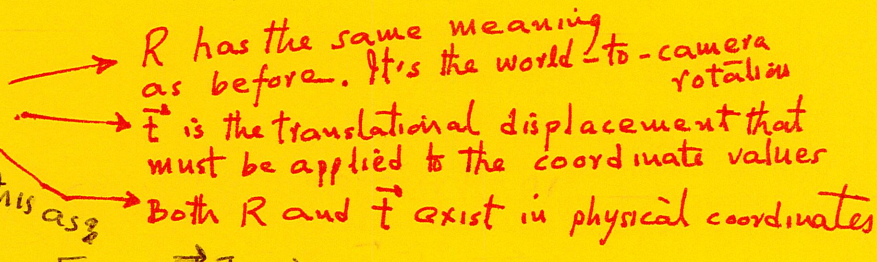 R has the same meaning
as before. It's the world-to-camera
rotation
t⃗ is the translational displacement that
must be applied to the coordinate values
his as
Both R and t⃗ exist in physical coordinates